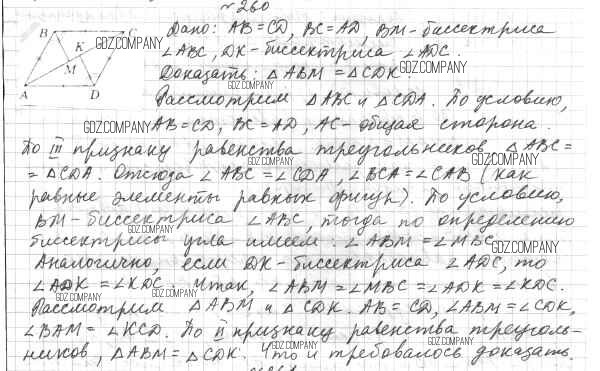 № 260
B C GDZ.COMPANY
K
M
A D
Дано: AB=CD, BC=AD, BM-биссектриса
∠ABC, DK-биссектриса ∠ADC.
Доказать: △ABM = △CDK. GDZ.COMPANY
GDZ.COMPANY
Рассмотрим △ABC и △CDA. По условию,
GDZ.COMPANY AB=CD, BC=AD, AC-общая сторона.
По III признаку равенства треугольников △ABC=
GDZ.COMPANY
= △CDA. Отсюда ∠ABC=∠CDA, ∠BCA=∠CAB (как
равные элементы равных фигур). По условию,
BM-биссектриса ∠ABC, тогда по определению
GDZ.COMPANY
биссектрисы угла имеем: ∠ABM=∠MBC. GDZ.COMPANY
Аналогично, если DK-биссектриса ∠ADC, то
∠ADK=∠KDC. Итак, ∠ABM=∠MBC=∠ADK=∠KDC.
GDZ.COMPANY GDZ.COMPANY
Рассмотрим △ABM и △CDK. AB=CD, ∠ABM=∠CDK,
GDZ.COMPANY
∠BAM=∠KCD. По II признаку равенства треуголь-
GDZ.COMPANY
ников, △ABM=△CDK. Что и требовалось доказать.